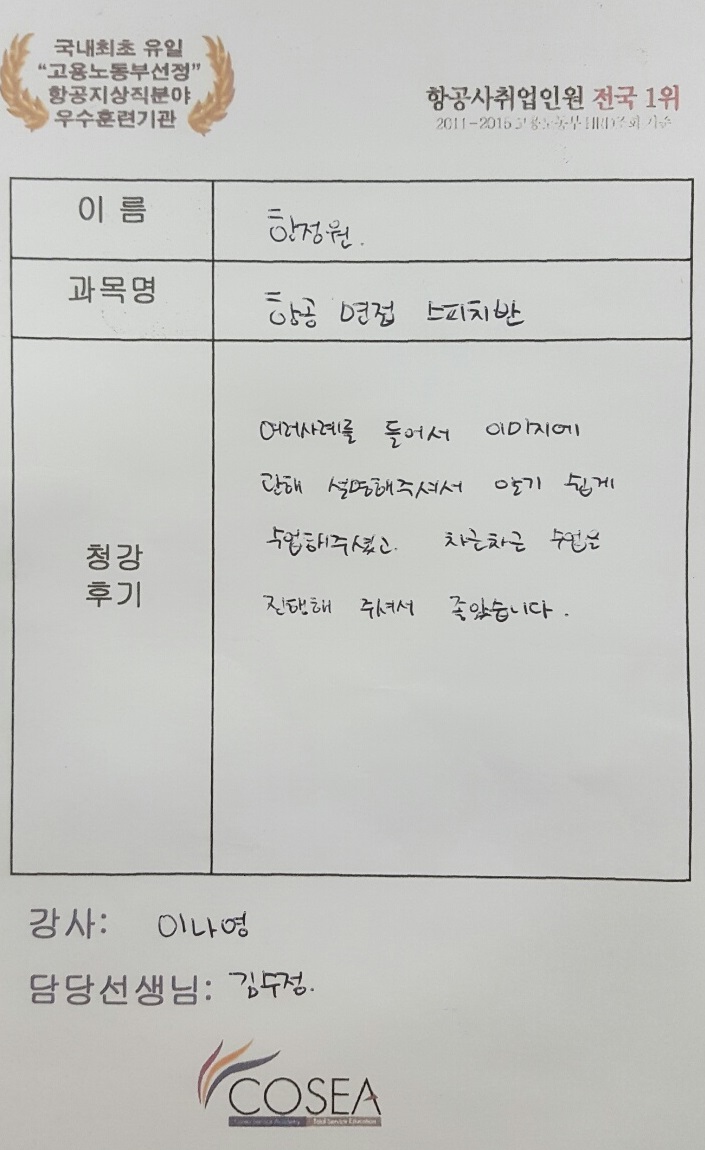 국내최초 유일
“고용노동부선정”
항공지상직분야
우수훈련기관
항공사취업인원 전국 1위
2011-2015 고용노동부 HRD조회 기준
이 름
한정원.
과목명
항공 면접 스피치반
청강
후기
여러사례를 들어서 이미지에
관해 설명해주셔서 알기 쉽게
수업해주셨고. 차근차근 수업을
진행해 주셔서 좋았습니다.
강사: 이나영
담당선생님: 김수정.
COSEA
Total Service Education